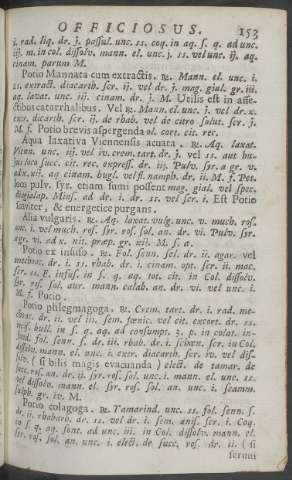 OFFICIOSUS. 153
i. rad. liq. dr. j. passul. unc. ss. coq. in aq. s. q. ad unc.
iij. m. in col. dissolv. mann. el. unc. j. ss. vel unc. ij. aq.
cinam. parum M.
Potio Mannata cum extractis. ℞. Mann. el. unc. i.
ss. extract. diacarth. scr. ij. vel dr. j. mag. gial. gr. iii.
aq. lavat. unc. iii. cinam. dr. j. M. Utilis est in affe-
ctibus catarrhalibus. Vel ℞. Mann. el. unc. j. vel dr. x.
extr. dicarth. scr. ij. de rhab. vel de citro solut. scr. j.
M. f. Potio brevis aspergenda ol. cort. cit. rec.
Aqua laxativa Viennensis acuata. ℞. Aq. laxat.
Vienn. unc. iij. vel iv. crem. tart. dr. j. vel ss. aut
loco succ. cit. rec. express. dr. iij. Pulv. gr. v.
ad x. xij. aq. cinam. bugl. vel
pulv. syr. etiam sumi possent mag. gial. vel spec.
ad dr. i. dr. ss. vel scr. i. Est Potio
suaviter, & energetice purgans.
Alia vulgaris. ℞. Aq. laxat. vulg. unc. v. much. ros.
unc. i. vel much. ros. syr. ros. sol. an. dr. vi. Pulv.
gr. vi. ad x. nit. præp. gr. xij. M. s. a.
Potio ex infuso. ℞. Fol. senn. sel. dr. ii. agar. vel
dr. i. ss. rhab. dr. i. cinam. opt. scr. ii. mac.
scr. ss. F. infus. in s. q. aq. tot. cit. in Col. dissolv.
ros. sol. aur. mann. calab. an. dr. vi. vel unc. i.
M. f. Potio.
Potio phlegmagoga. ℞. Crem. tart. dr. i. rad.
dr. ii. vel iii. sem. fœnic. vel cit. excort. dr. ss.
bull. in s. q. aq. ad consumpt. 3. p. in colat.
fol. senn. s. dr. iii. rhab. dr. i. schœn. scr. in Col.
dissolv. mann. el. unc. i. extr. diacarth. scr. iv. vel
(si bilis magis evacuanda) elect. de tamar. de
succ. ros. an. dr. ros. sol. unc. i. mann. el. unc. ss.
vel dissolv. mann. el. syr. ros. sol. an. unc. i. scamm.
sulph. gr. iv. M.
Potio colagoga. ℞. Tamarind. unc. ss. fol. senn. s.
dr. ii. rhabarb. dr. ss. vel dr. i. sem. anis. scr. i. Coq.
in s. q. aq. font. ad unc. iii. in Col. dissolv. mann. el.
syr. ros. sol. an. unc. i. elect. de succ. ros. dr. ii. (si
serum